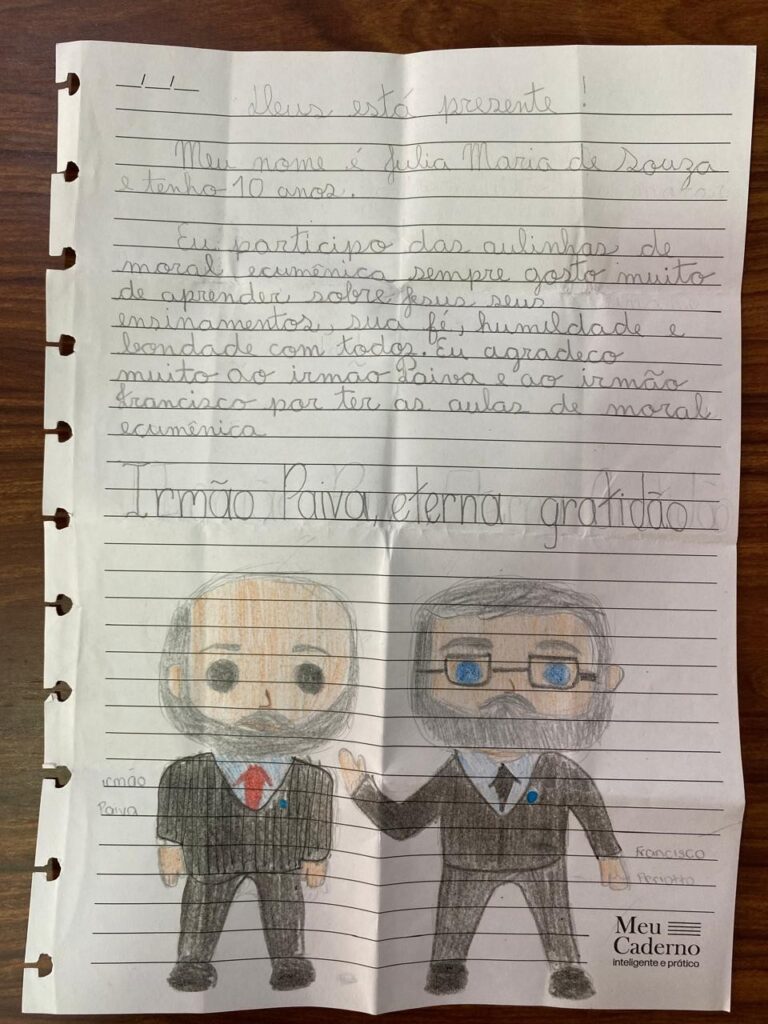 __/__/__
Deus está presente!
Meu nome é Julia Maria de Souza
e tenho 10 anos.
Eu participo das aulinhas de
moral ecumênica sempre gosto muito
de aprender sobre Jesus seus
ensinamentos, sua fé, humildade e
bondade com todos. Eu agradeco
muito ao irmão Paiva e ao irmão
Francisco por ter as aulas de moral
ecumênica
Irmão Paiva, eterna gratidão
irmão
Paiva
Francisco
Periotto
Meu
Caderno
inteligente e prático